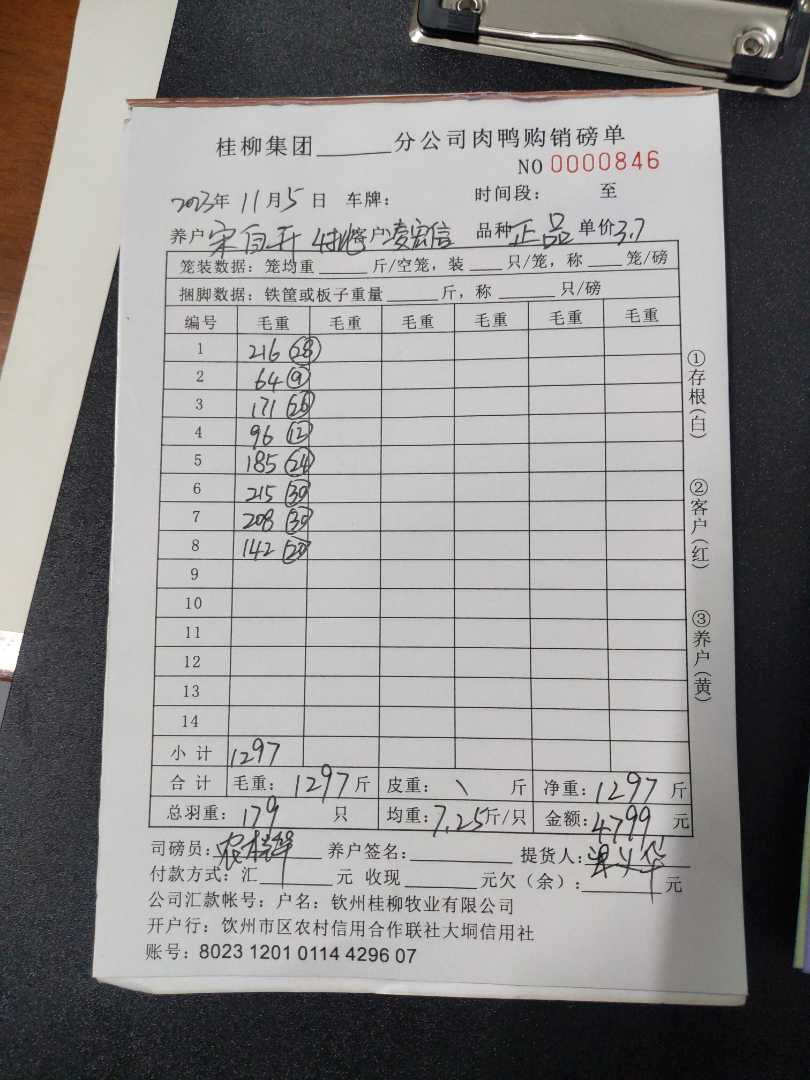 桂柳集团______分公司肉鸭购销磅单
NO 0000846
2023年 11月5日 车牌: 时间段: 至
养户 宋自开 客户 凌宏信 品种 正品 单价 3.7
笼装数据: 笼均重____斤/空笼, 装___只/笼, 称___笼/磅
捆脚数据: 铁筐或板子重量_____斤, 称_____只/磅
编号 毛重 毛重 毛重 毛重 毛重 毛重
1 216 (28)
2 64 (9)
3 171 (26)
4 96 (12)
5 185 (24)
6 215 (30)
7 208 (30)
8 142 (20)
9
10
11
12
13
14
小计 1297
合计 毛重: 1297斤 皮重: \ 斤 净重: 1297斤
总羽重: 179 只 均重: 7.25斤/只 金额: 4799元
司磅员: 养户签名:________ 提货人:
付款方式: 汇______元 收现______元欠(余):______元
公司汇款帐号: 户名: 钦州桂柳牧业有限公司
开户行: 钦州市区农村信用合作联社大垌信用社
账号: 8023 1201 0114 4296 07
①存根(白)
②客户(红)
③养户(黄)